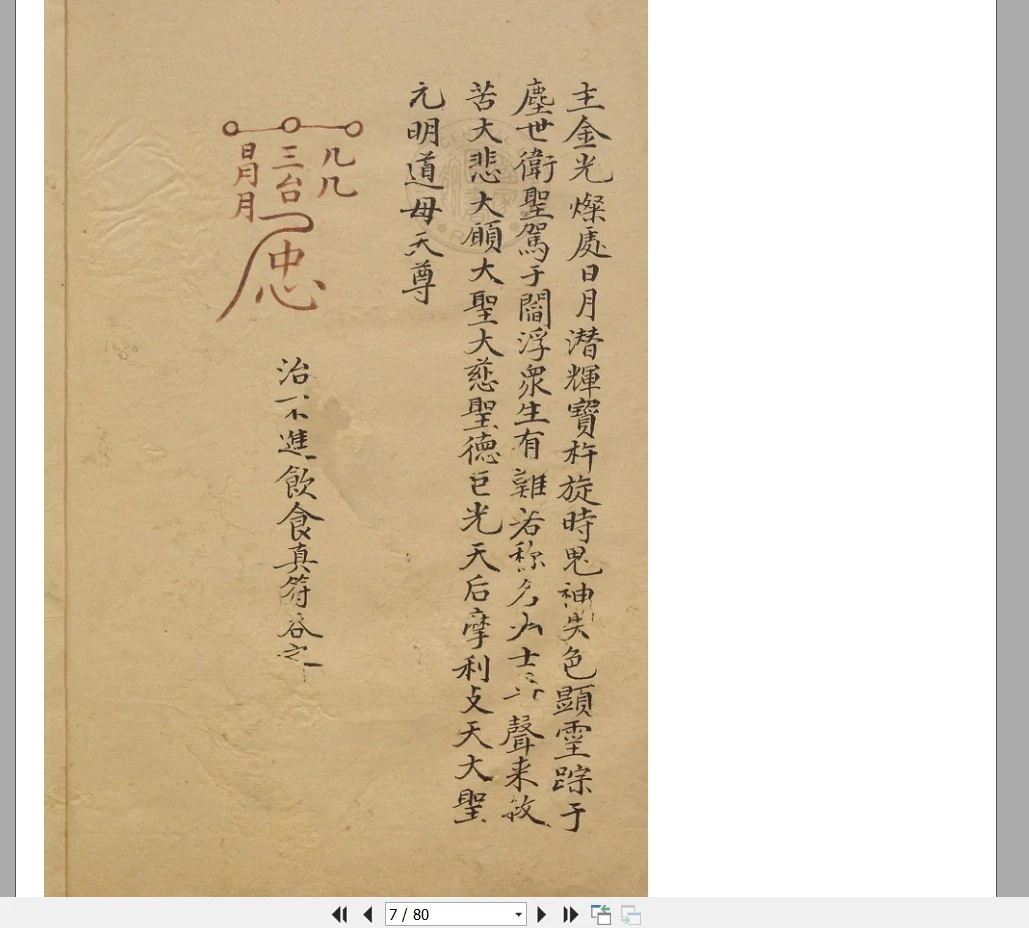 主金光燦處日月潜輝寳杵旋時鬼神失色顯霊踪于
塵世衛聖駕于閻浮衆生有難若称名大士尋聲来救
苦大悲大願大聖大慈聖德巨光天后摩利攴天大聖
元明道母天尊
几几
三台
日月月
忠
治一不進飲食真符吞之
7 / 80